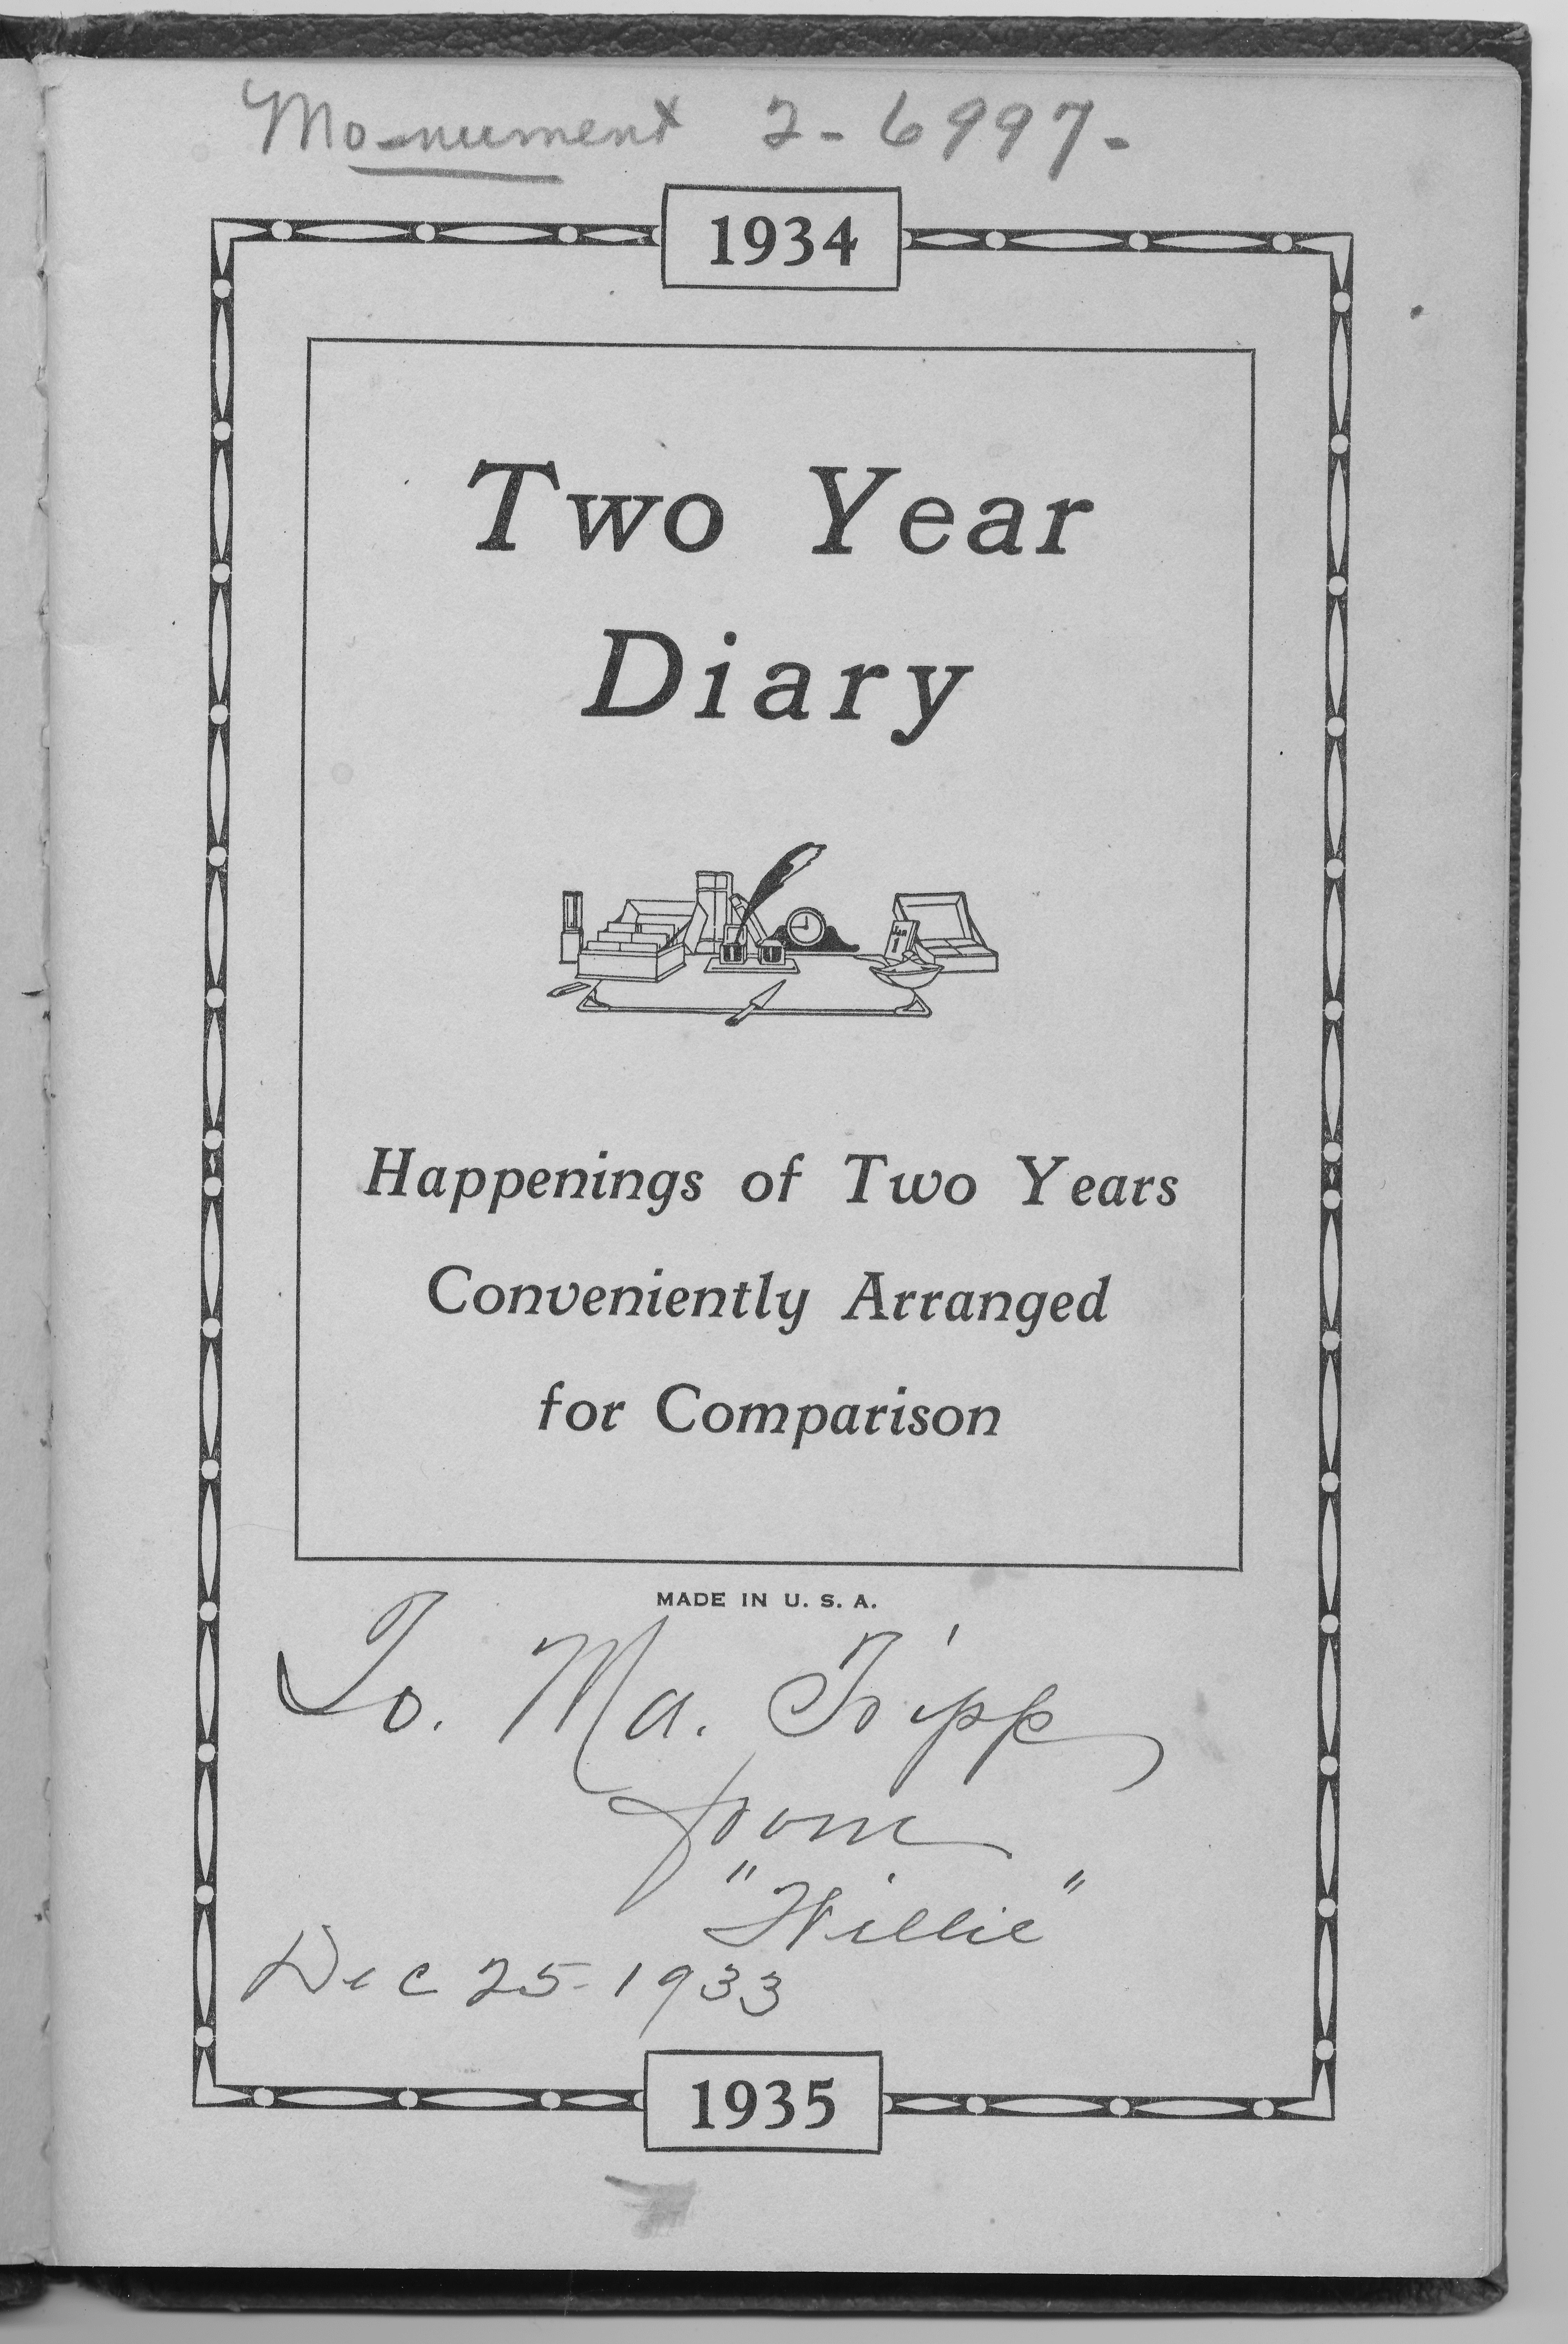 Monument 2-6997-
1934
Two Year
Diary
Jan
1
Happenings of Two Years
Conveniently Arranged
for Comparison
MADE IN U. S. A.
To. Ma. Tripp
from
"Willie"
Dec 25-1933
1935